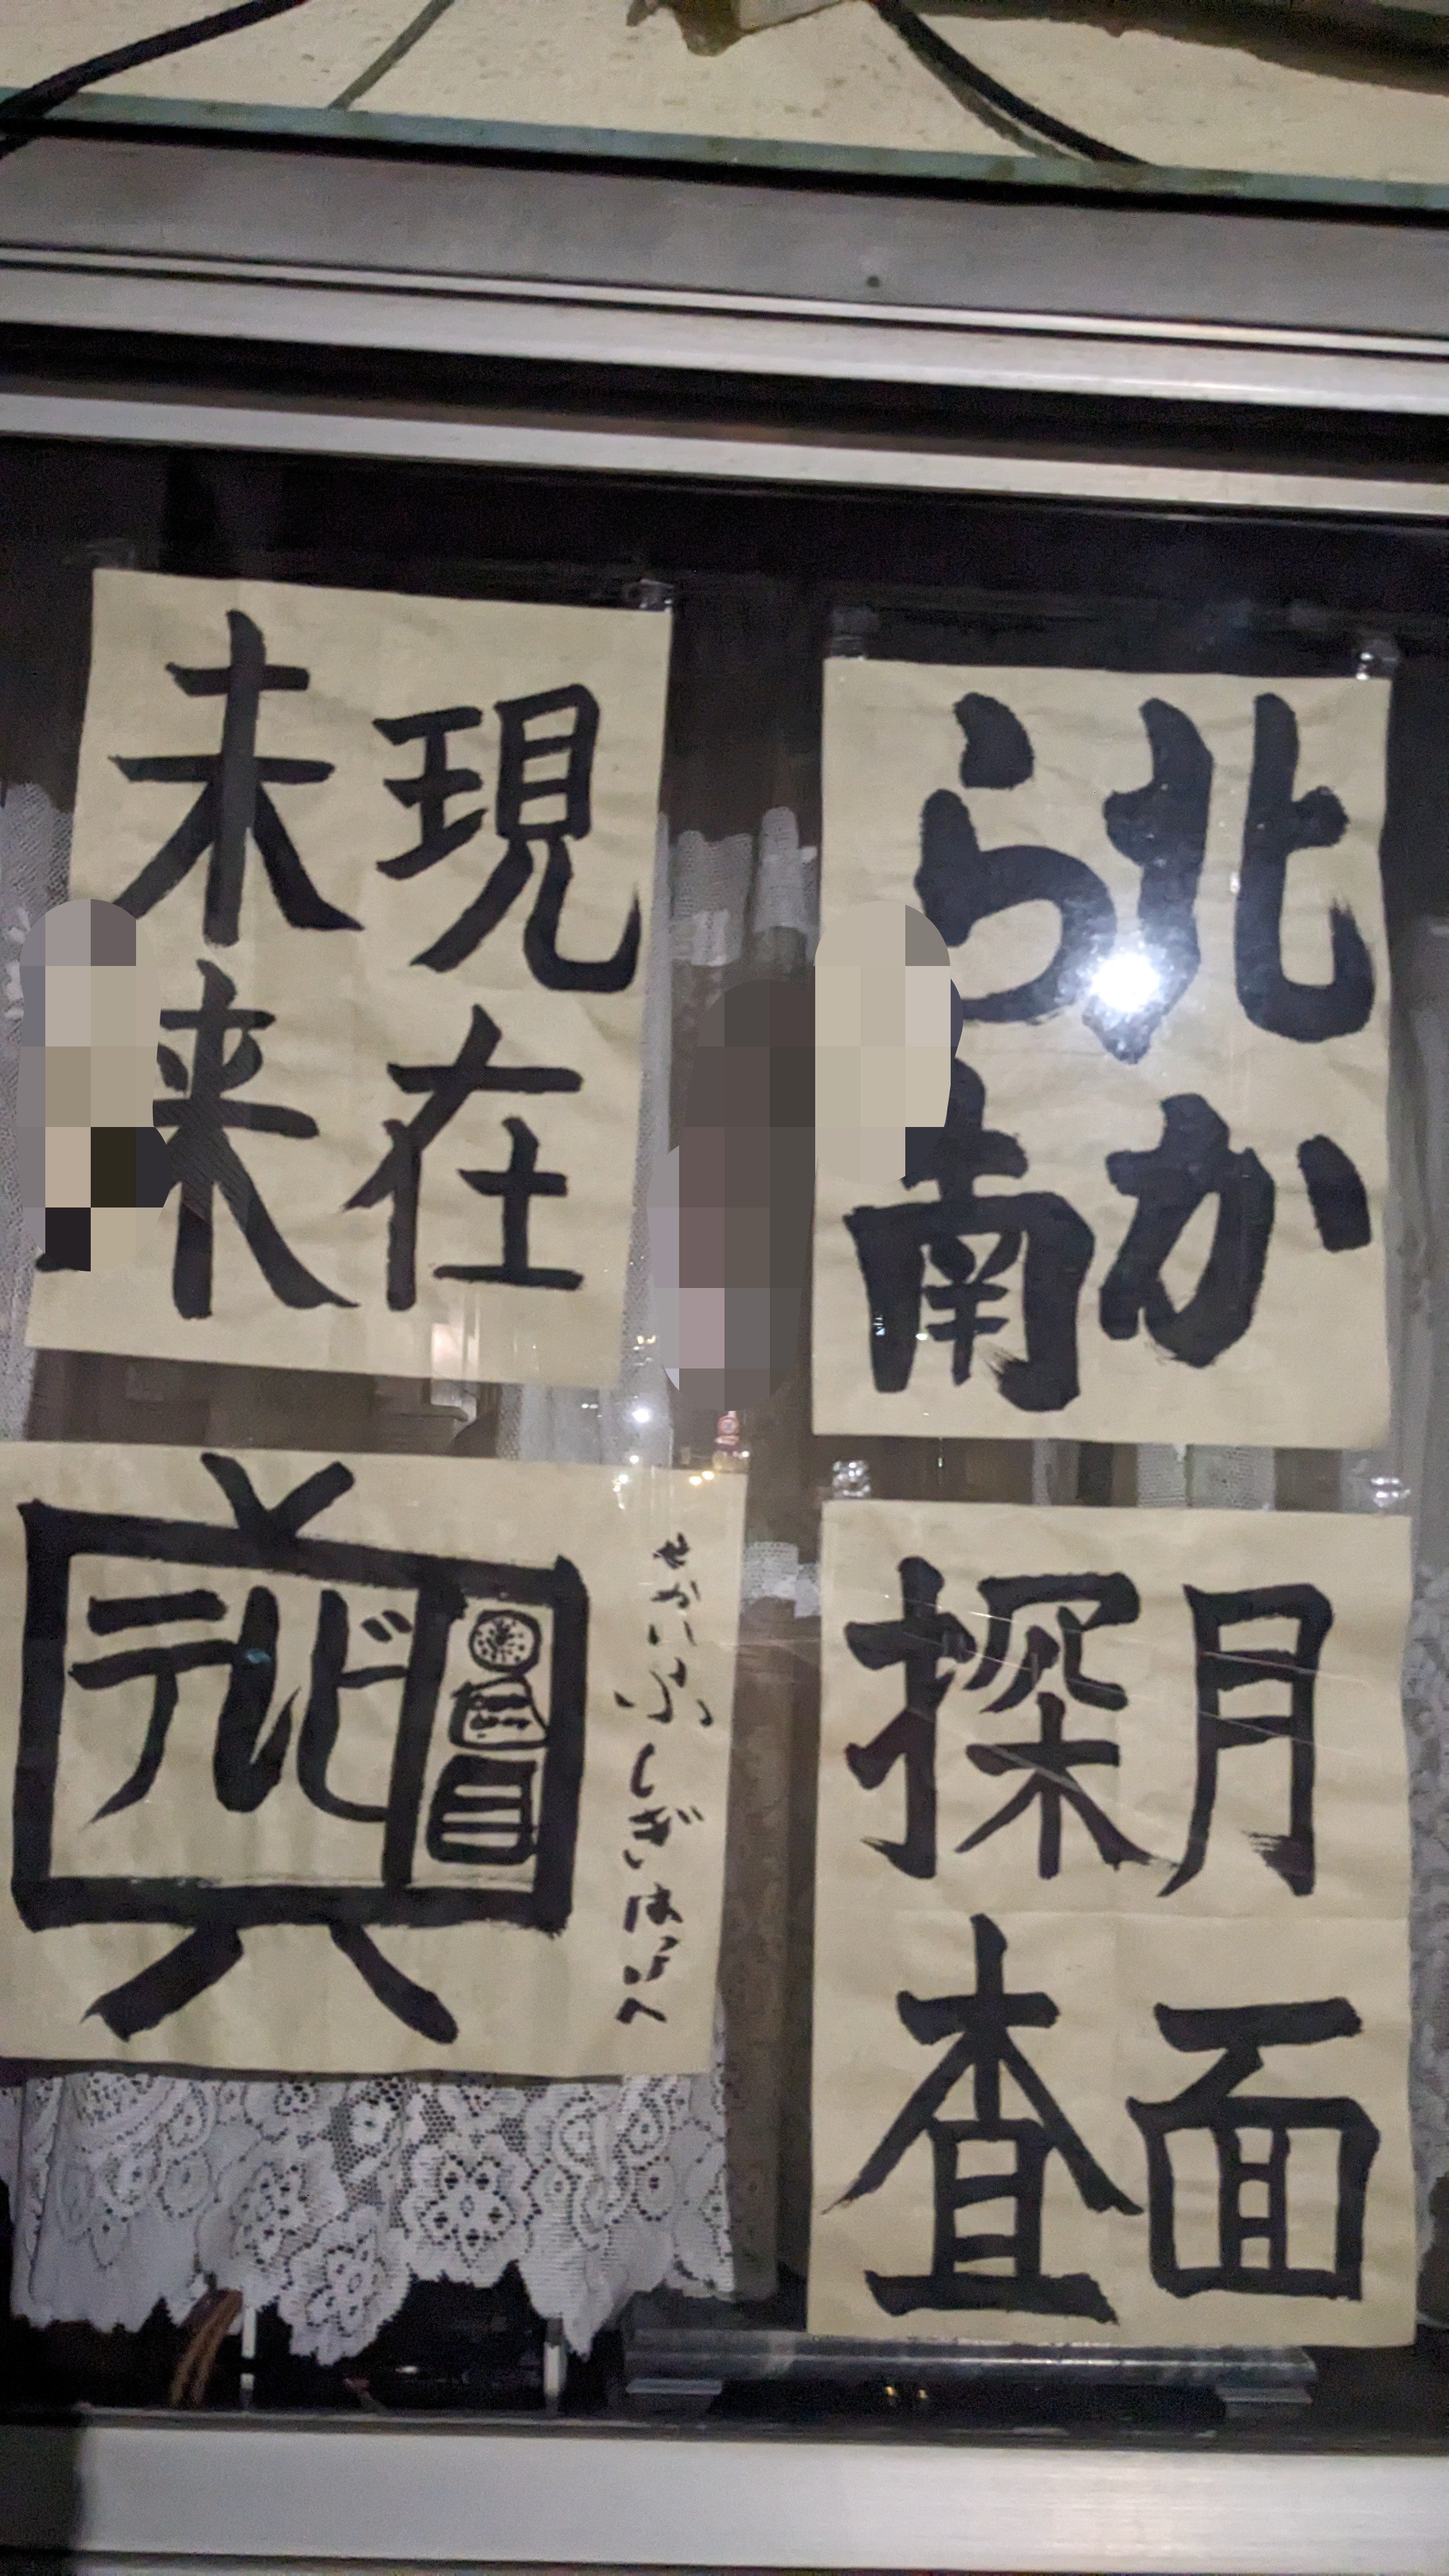 北か
ら南
現在
未来
月面
探査
せかいふしぎは
テレビ